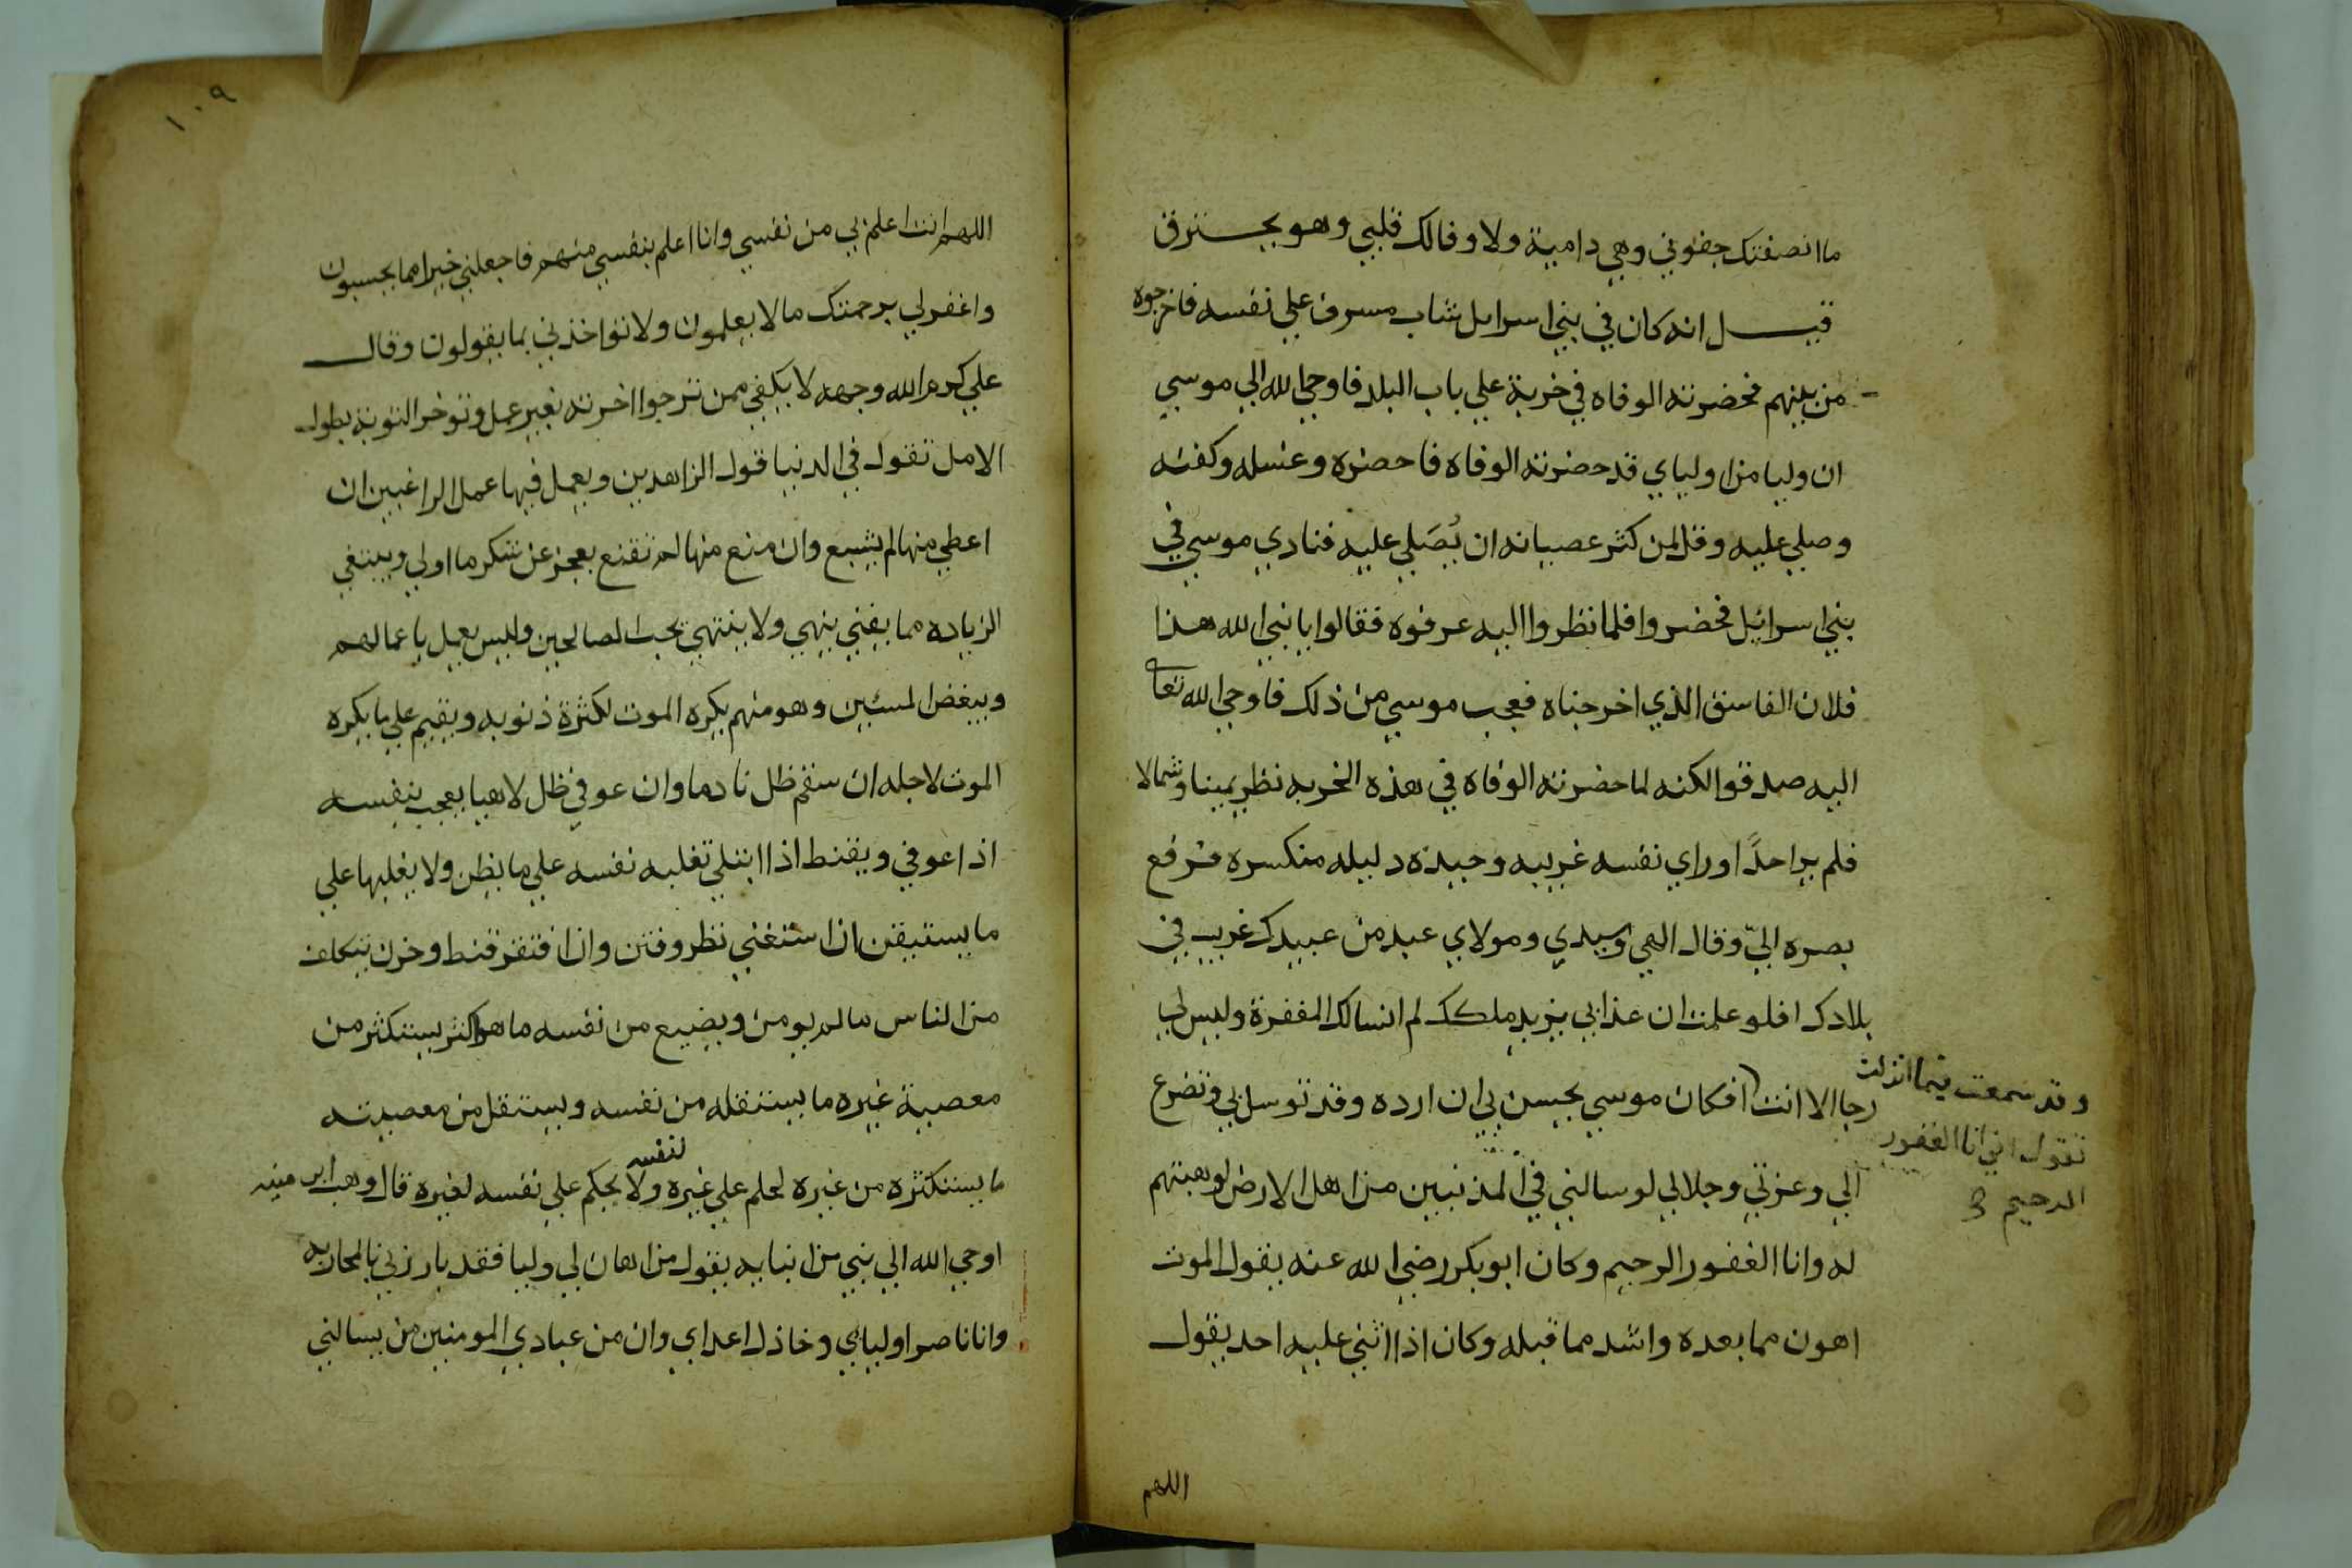 ما انصفتك جفوني وهي دامية ولا وفا لك قلبي وهو يحترق
قيل انه كان في بني اسرايل شاب مسرف علي نفسه فاخرجوه
من بينهم فحضرته الوفاه في خربة علي باب البلد فاوحي الله الي موسي
ان وليا من اولياي قد حضرته الوفاه فاحضره وغسله وكفنه
وصلي عليه وقل لمن كثر عصيانه ان يُصَلي عليه فنادي موسي في
بني اسرائيل فحضروا فلما نظروا اليه عرفوه فقالوا يا نبي الله هذا
فلان الفاسق الذي اخرجناه فعجب موسي من ذلك فاوحي الله تعا
اليه صدقوا لكنه لما حضرته الوفاه في هذه الخربه نظر يمينا وشمالا
فلم ير احدًا وراي نفسه غريبه وحيده دليله منكسره فرفع
بصره اليّ وقال الهي وسيدي ومولاي عبد من عبيدك غريب في
بلادك فلو علمت ان عذابي يزيد ملكك لم اسالك المغفرة وليس لي
رجا الا انت افكان موسي يحسن بي ان ارده وقد توسل بي وتضرع
وقد سمعت فيما انزلت
تقول اني انا الغفور
الرحيم
الي وعزتي وجلالي لو سالني في المذنبين من اهل الارض لوهبتهم
له وانا الغفور الرحيم وكان ابو بكر رضي الله عنه يقول الموت
اهون مما بعده واشد مما قبله وكان اذا اثني عليه احد يقول
اللهم
١٠٩
اللهم انت اعلم بي من نفسي وانا اعلم بنفسي منهم فاجعلني خيرا مما يحسبون
واغفر لي برحمتك ما لا يعلمون ولا تواخذني بما يقولون وقال
علي كرم الله وجهه لا يكفي ممن ترجوا اخرته بغير عمل وتوخر التوبة بطول
الامل تقول في الدنيا قول الزاهدين ويعمل فيها عمل الراغبين ان
اعطي منها لم يشبع وان منع منها لم تقنع يعجز عن شكر ما اولي ويبتغي
الزياده مما يفني ينهي ولا ينتهي يحب الصالحين وليس يعمل باعمالهم
ويبغض المسئين وهو منهم يكره الموت لكثرة ذنوبه ويقيم علي ما يكره
الموت لاجله ان سقم ظل نادما وان عوفي ظل لاهيا يعجب بنفسه
اذا عوفي ويقنط اذا ابتلي تغلبه نفسه علي ما يظن ولا يغلبها علي
ما يستيقن اذا استغني نظر وفتن وان افتقر قنط وحزن يتكلف
من الناس ما لم يومن ويضيع من نفسه ما هو اكثر يستكثر من
معصية غيره ما يستقله من نفسه ويستقل من معصيته
ما يستكثره من غيره لحلم علي غيره لنفسه ولا يحكم علي نفسه لغيره قال وهب ابن منبه
اوحي الله الي نبي من انبيايه يقول من اهان لي وليا فقد بارزني بالمحاربه
وانا ناصر اولياي وخاذل اعداي وان من عبادي المومنين من يسالني